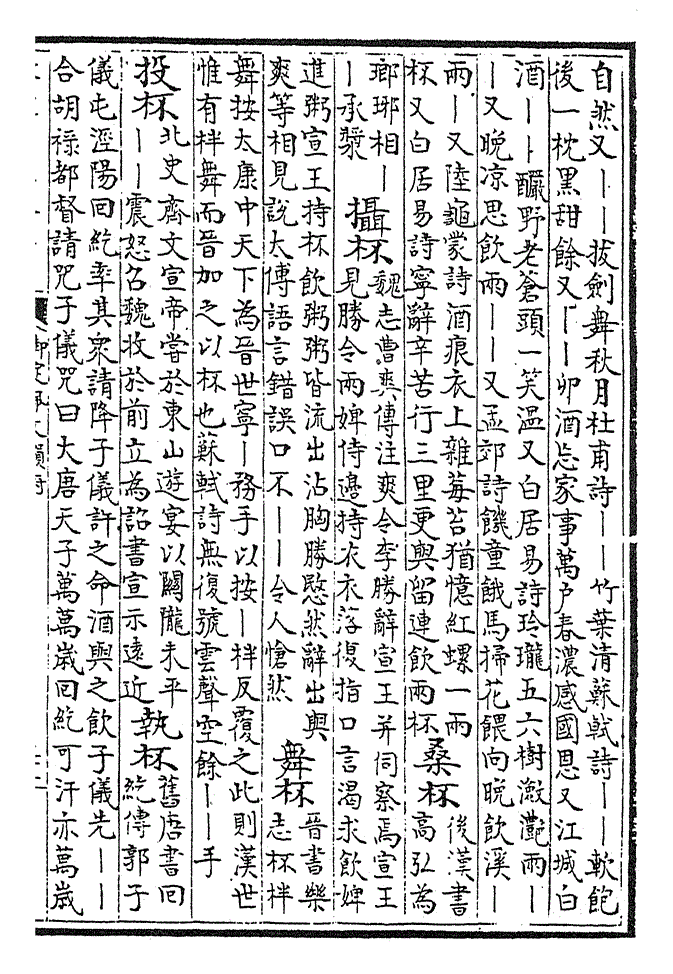 自然又｜｜拔劍舞秋月杜甫詩｜｜竹葉清蘇軾詩｜｜軟飽
後一枕黑甜餘又｜｜卯酒忘家事萬户春濃感國恩又江城白
酒｜｜釅野老蒼頭一笑溫又白居易詩玲瓏五六樹潋灔兩｜
｜又晚凉思飲兩｜｜又孟郊詩饑童餓馬掃花餵向晚飲溪｜
兩｜又陸龜蒙詩酒痕衣上雜莓苔猶憶紅螺一兩
杯又白居易詩寧辭辛苦行三里更與留連飲兩杯
桑杯
後漢書
高弘為
瑯琊相｜
｜承漿
攝杯
魏志曹爽傳注爽令李勝辭宣王并伺察焉宣王
見勝令兩婢侍邊持衣衣落復指口言渴求飲婢
進粥宣王持杯飲粥粥皆流出沾胸勝愍然辭出與
爽等相見說太傅語言錯誤口不｜｜令人愴然
舞杯
晉書樂
志杯柈
舞按太康中天下為晉世寧｜務手以按｜柈反覆之此則漢世
惟有柈舞而晉加之以杯也蘇軾詩無復號雲聲空餘｜｜手
投杯
北史齊文宣帝嘗於東山遊宴以關隴未平
｜｜震怒召魏收於前立為詔書宣示遠近
執杯
舊唐書回
紇傳郭子
儀屯涇陽回紇率其衆請降子儀許之命酒與之飲子儀先｜｜
合胡祿都督請咒子儀咒曰大唐天子萬萬歲回紇可汗亦萬歲